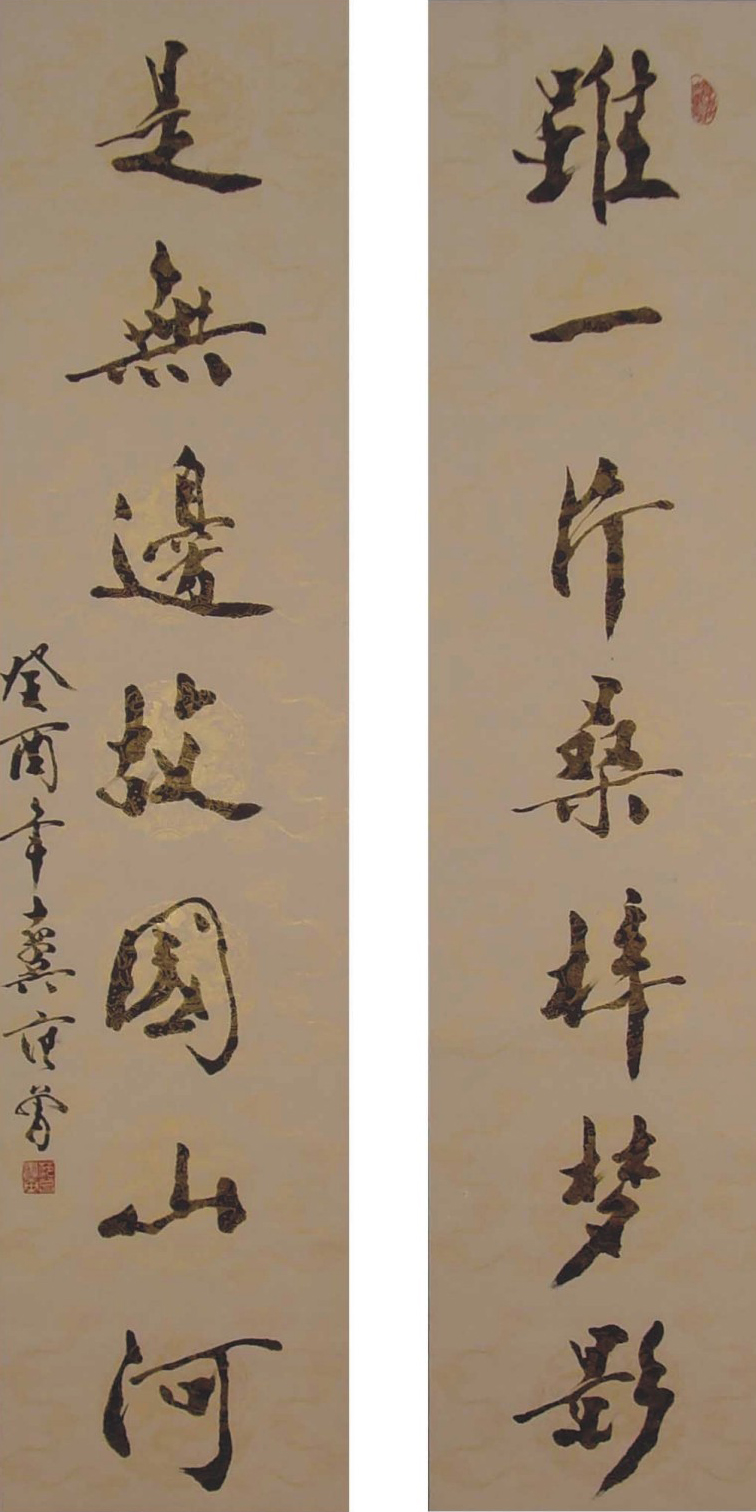 雖一片桑梓梦影
是無邊故國山河
癸酉年冀唐曾